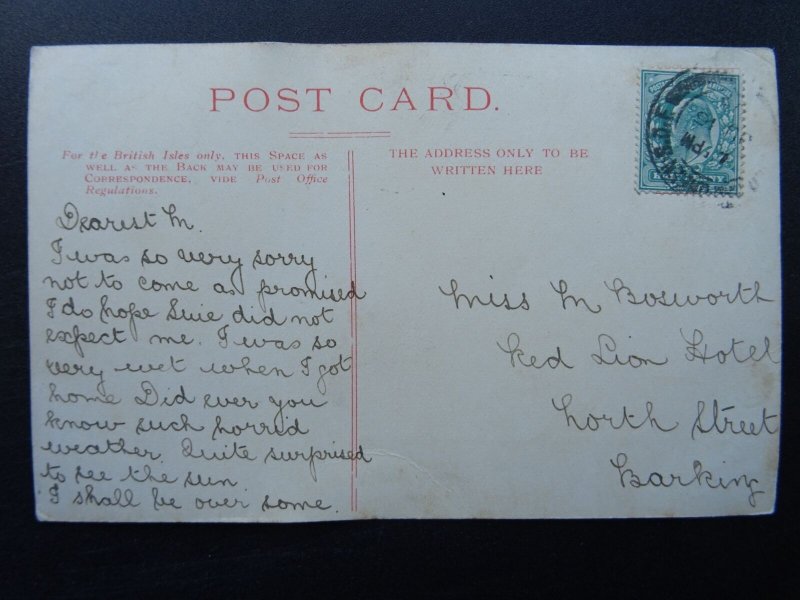 POST CARD.
For the British Isles only, THIS SPACE AS
WELL AS THE BACK MAY BE USED FOR
CORRESPONDENCE, VIDE Post Office
Regulations.
THE ADDRESS ONLY TO BE
WRITTEN HERE
Dearest M.
I was so very sorry
not to come as promised
I do hope did not
expect me. I was so
very wet when I got
home Did ever you
know such horrid
weather. Quite surprised
to see the sun.
I shall be over some.
Miss M Bosworth
Red Lion Hotel
North Street
Barking